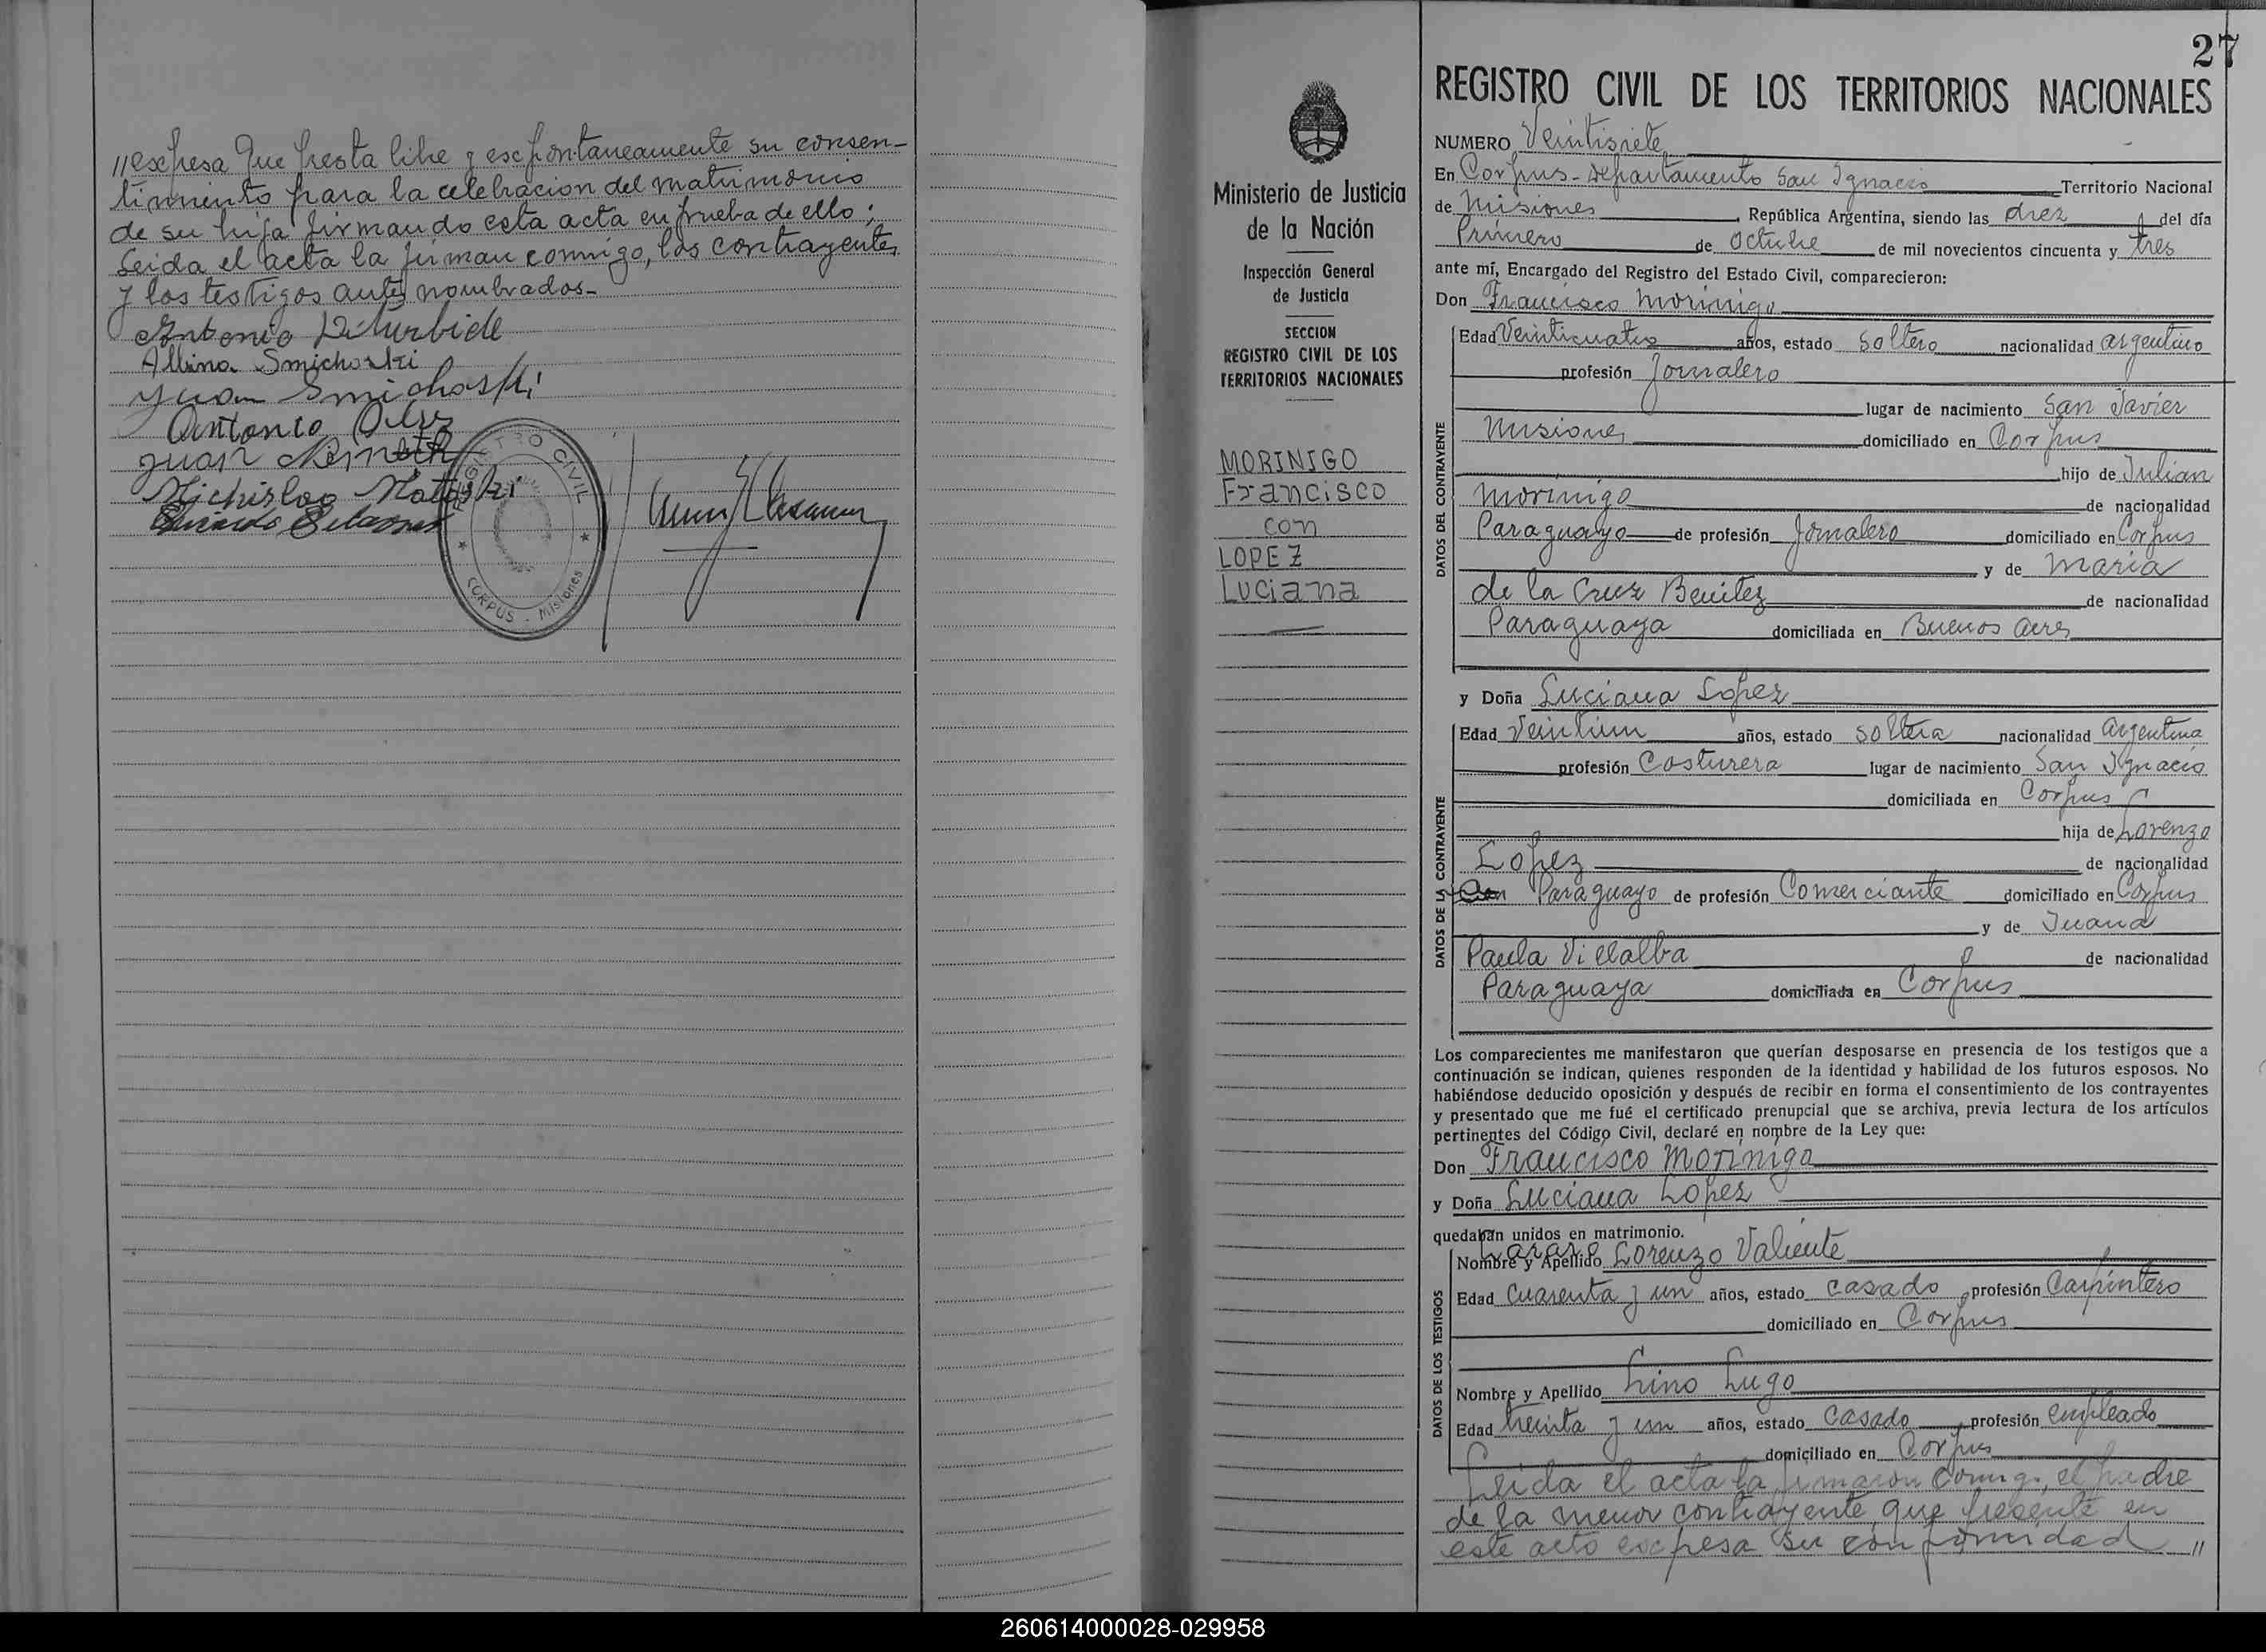 //expresa que presta libre y escpontaneamente su consen-
timiento para la celebracion del matrimonio
de su hija firmando esta acta en prueba de ello;
Leida el acta la firman conmigo, los contrayentes
y los testigos antes nombrados-
Antonio Iturbide
Albina Smichoski
Yuan Smichoski
Antonio
Juan
REGISTRO CIVIL
CORPUS - Misiones
27
Ministerio de Justicia
de la Nación
Inspección General
de Justicia
SECCION
REGISTRO CIVIL DE LOS
TERRITORIOS NACIONALES
MORINIGO
Francisco
con
LOPEZ
Luciana
REGISTRO CIVIL DE LOS TERRITORIOS NACIONALES
NUMERO Veintisiete
En Corpus - Departamento San Ignacio Territorio Nacional
de Misiones, República Argentina, siendo las diez del día
Primero de Octubre de mil novecientos cincuenta y tres
ante mí, Encargado del Registro del Estado Civil, comparecieron:
Don Francisco Morinigo
DATOS DEL CONTRAYENTE
Edad Veinticuatro años, estado soltero nacionalidad argentino
profesión Jornalero
lugar de nacimiento San Javier
Misiones domiciliado en Corpus
hijo de Julian
Morinigo de nacionalidad
Paraguayo de profesión Jornalero domiciliado en Corpus
y de Maria
de la Cruz Benitez de nacionalidad
Paraguaya domiciliada en Buenos Aires
y Doña Luciana Lopez
DATOS DE LA CONTRAYENTE
Edad Veintiun años, estado soltera nacionalidad argentina
profesión Costurera lugar de nacimiento San Ignacio
domiciliada en Corpus
hija de Lorenzo
Lopez de nacionalidad
Paraguayo de profesión Comerciante domiciliado en Corpus
y de Juana
Paula Villalba de nacionalidad
Paraguaya domiciliada en Corpus
Los comparecientes me manifestaron que querían desposarse en presencia de los testigos que a
continuación se indican, quienes responden de la identidad y habilidad de los futuros esposos. No
habiéndose deducido oposición y después de recibir en forma el consentimiento de los contrayentes
y presentado que me fué el certificado prenupcial que se archiva, previa lectura de los artículos
pertinentes del Código Civil, declaré en nombre de la Ley que:
Don Francisco Morinigo
y Doña Luciana Lopez
quedaban unidos en matrimonio.
DATOS DE LOS TESTIGOS
Nombre y Apellido Lorenzo Valiente
Edad Cuarenta y un años, estado casado profesión Carpintero
domiciliado en Corpus
Nombre y Apellido Lino Lugo
Edad treinta y un años, estado casado, profesión empleado
domiciliado en Corpus
Leida el acta la firmaron conmigo, el padre
de la menor contrayente, que presente en
este acto excpresa su conformidad //
260614000028-029958